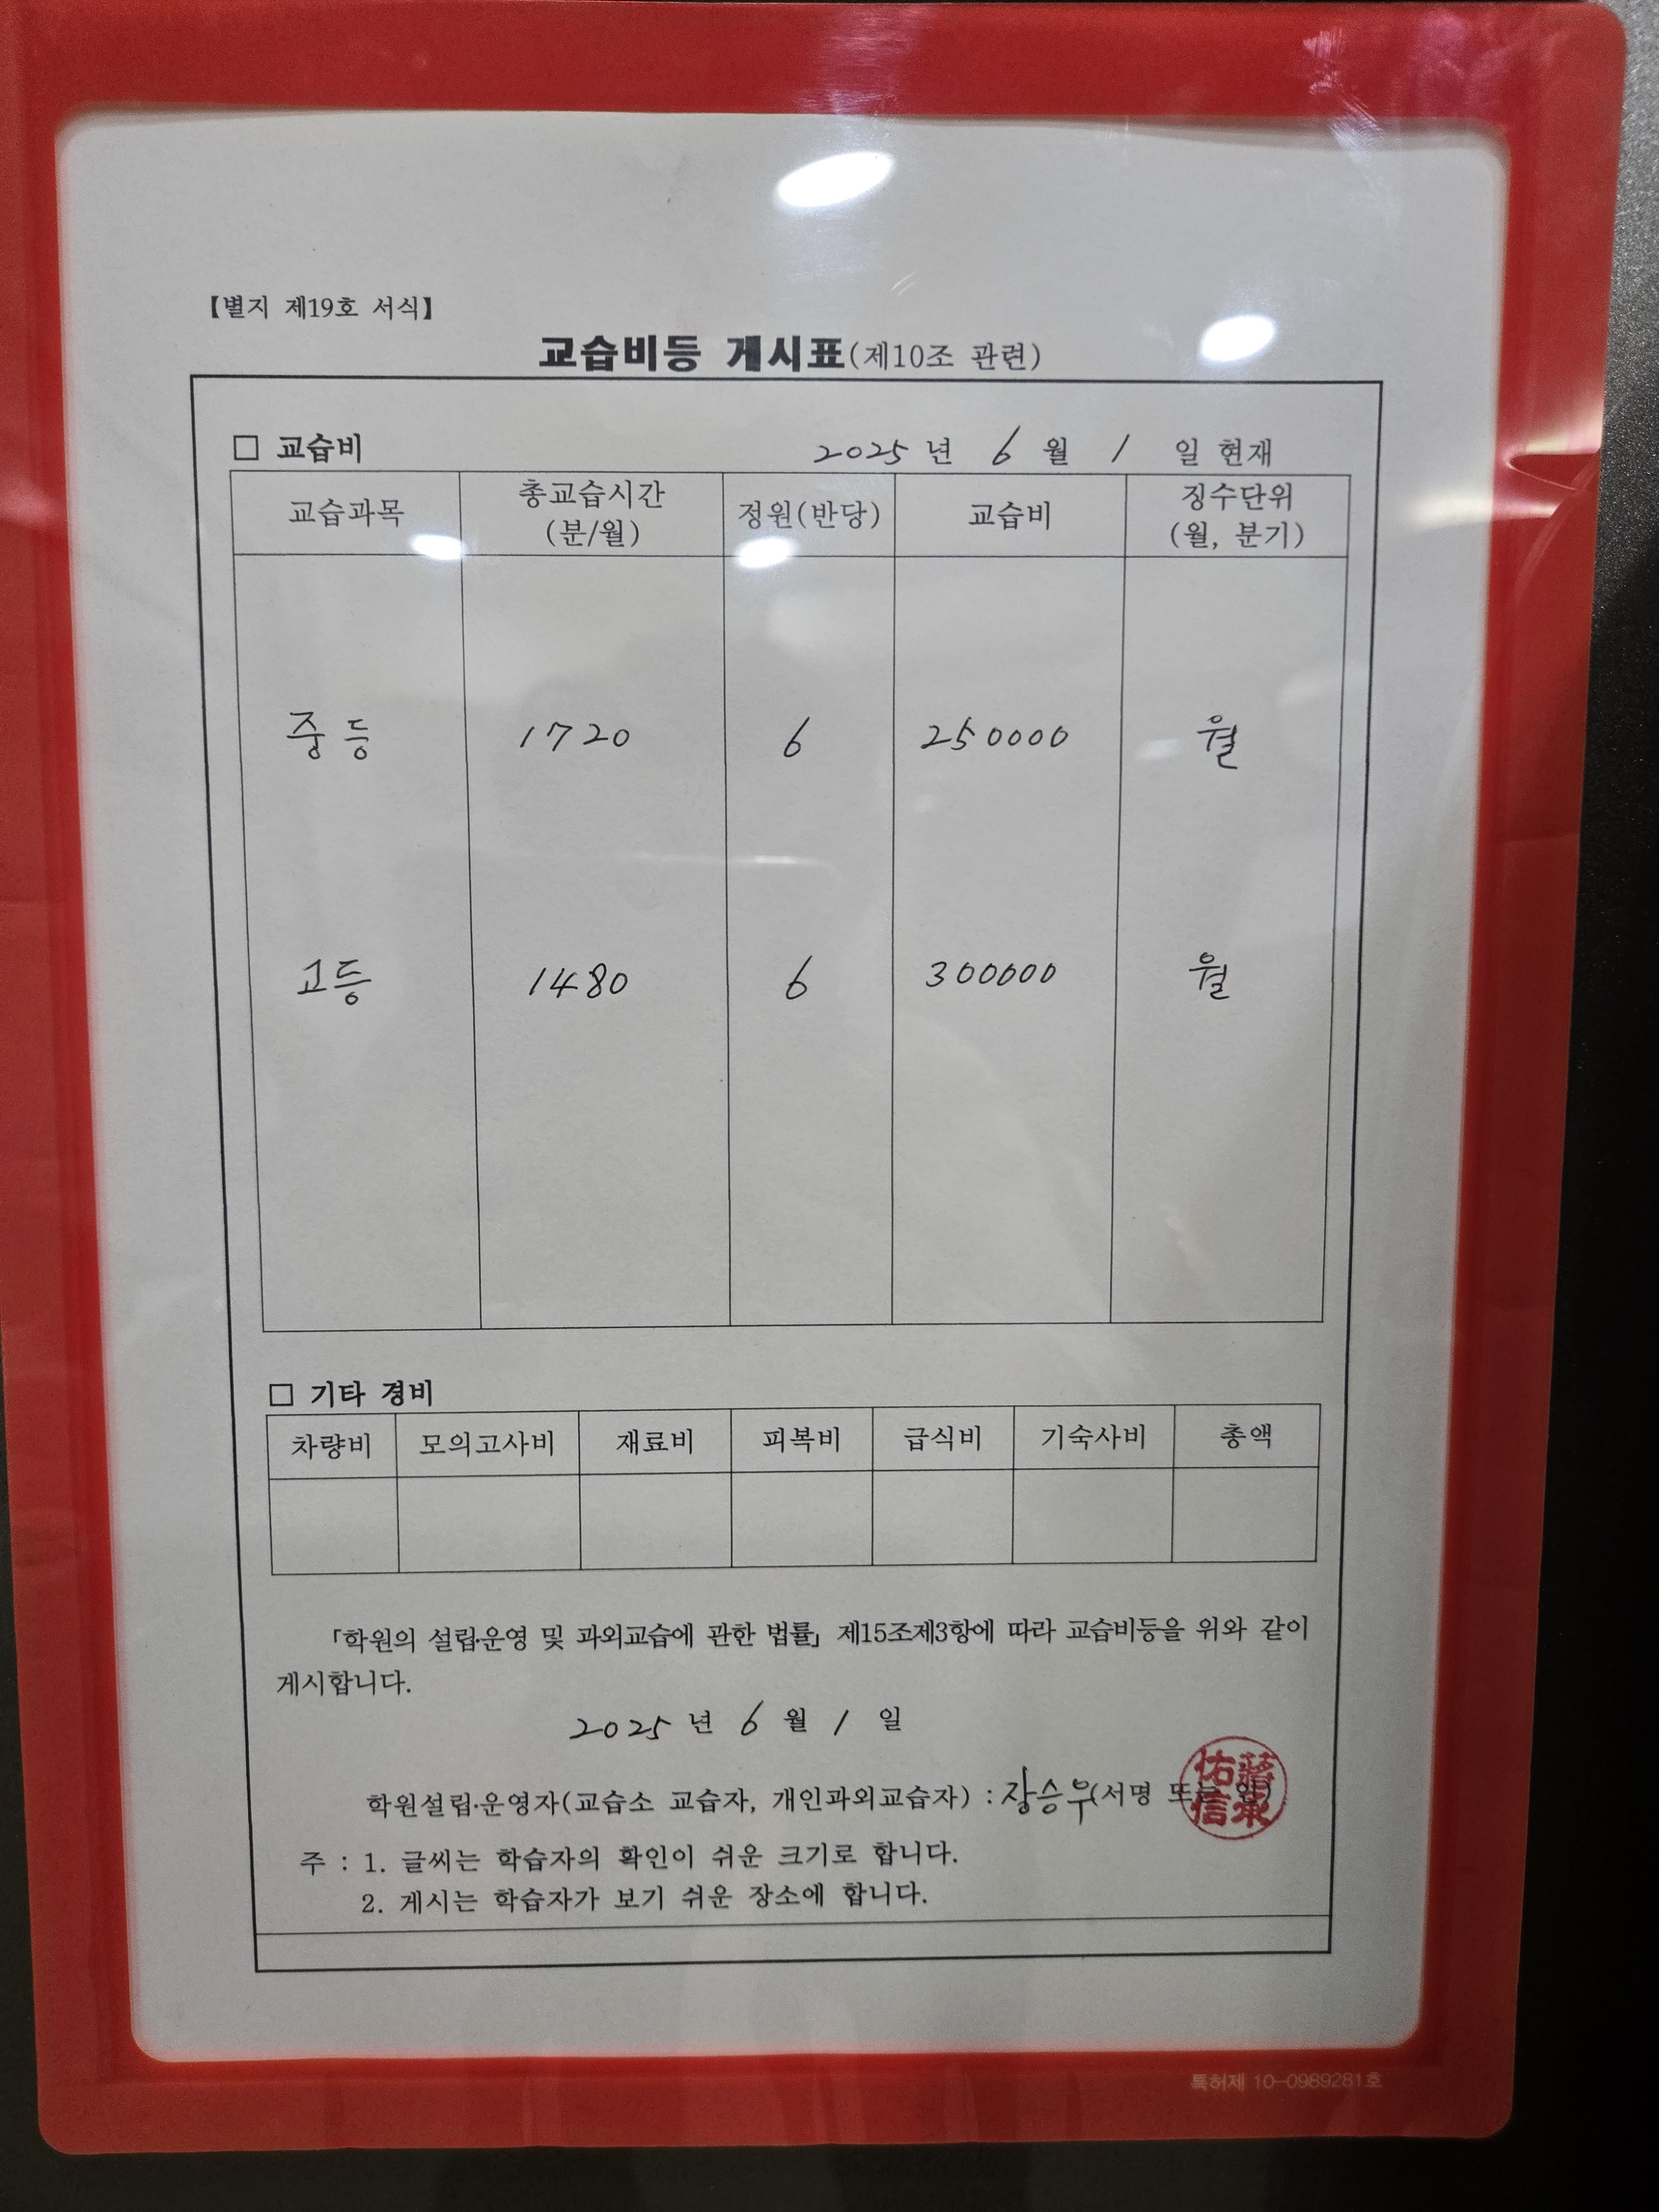 【별지 제19호 서식】
교습비등 게시표(제10조 관련)
□ 교습비 2025 년 6 월 1 일 현재
교습과목 총교습시간 (분/월) 정원(반당) 교습비 징수단위 (월, 분기)
중등 1720 6 250000 월
고등 1480 6 300000 월
□ 기타 경비
차량비 모의고사비 재료비 피복비 급식비 기숙사비 총액
「학원의 설립·운영 및 과외교습에 관한 법률」 제15조제3항에 따라 교습비등을 위와 같이
게시합니다.
2025 년 6 월 1 일
학원설립·운영자(교습소 교습자, 개인과외교습자) : 장승우(서명 또는 인)
蔣承佑信
주 : 1. 글씨는 학습자의 확인이 쉬운 크기로 합니다.
2. 게시는 학습자가 보기 쉬운 장소에 합니다.
특허제 10-0989281호